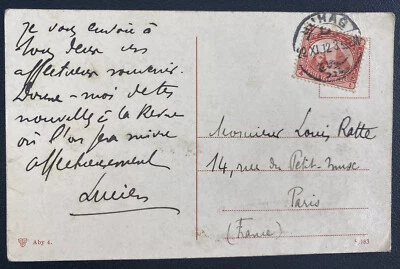 Je vous envoie à
tous deux un
affectueux souvenir.
Donne-moi de tes
nouvelles à la Revue
où l'on fera suivre
affectueusement
Lucien
Monsieur Louis Ratte
14, rue du Petit-Musc
Paris
(France)
Aby 4.